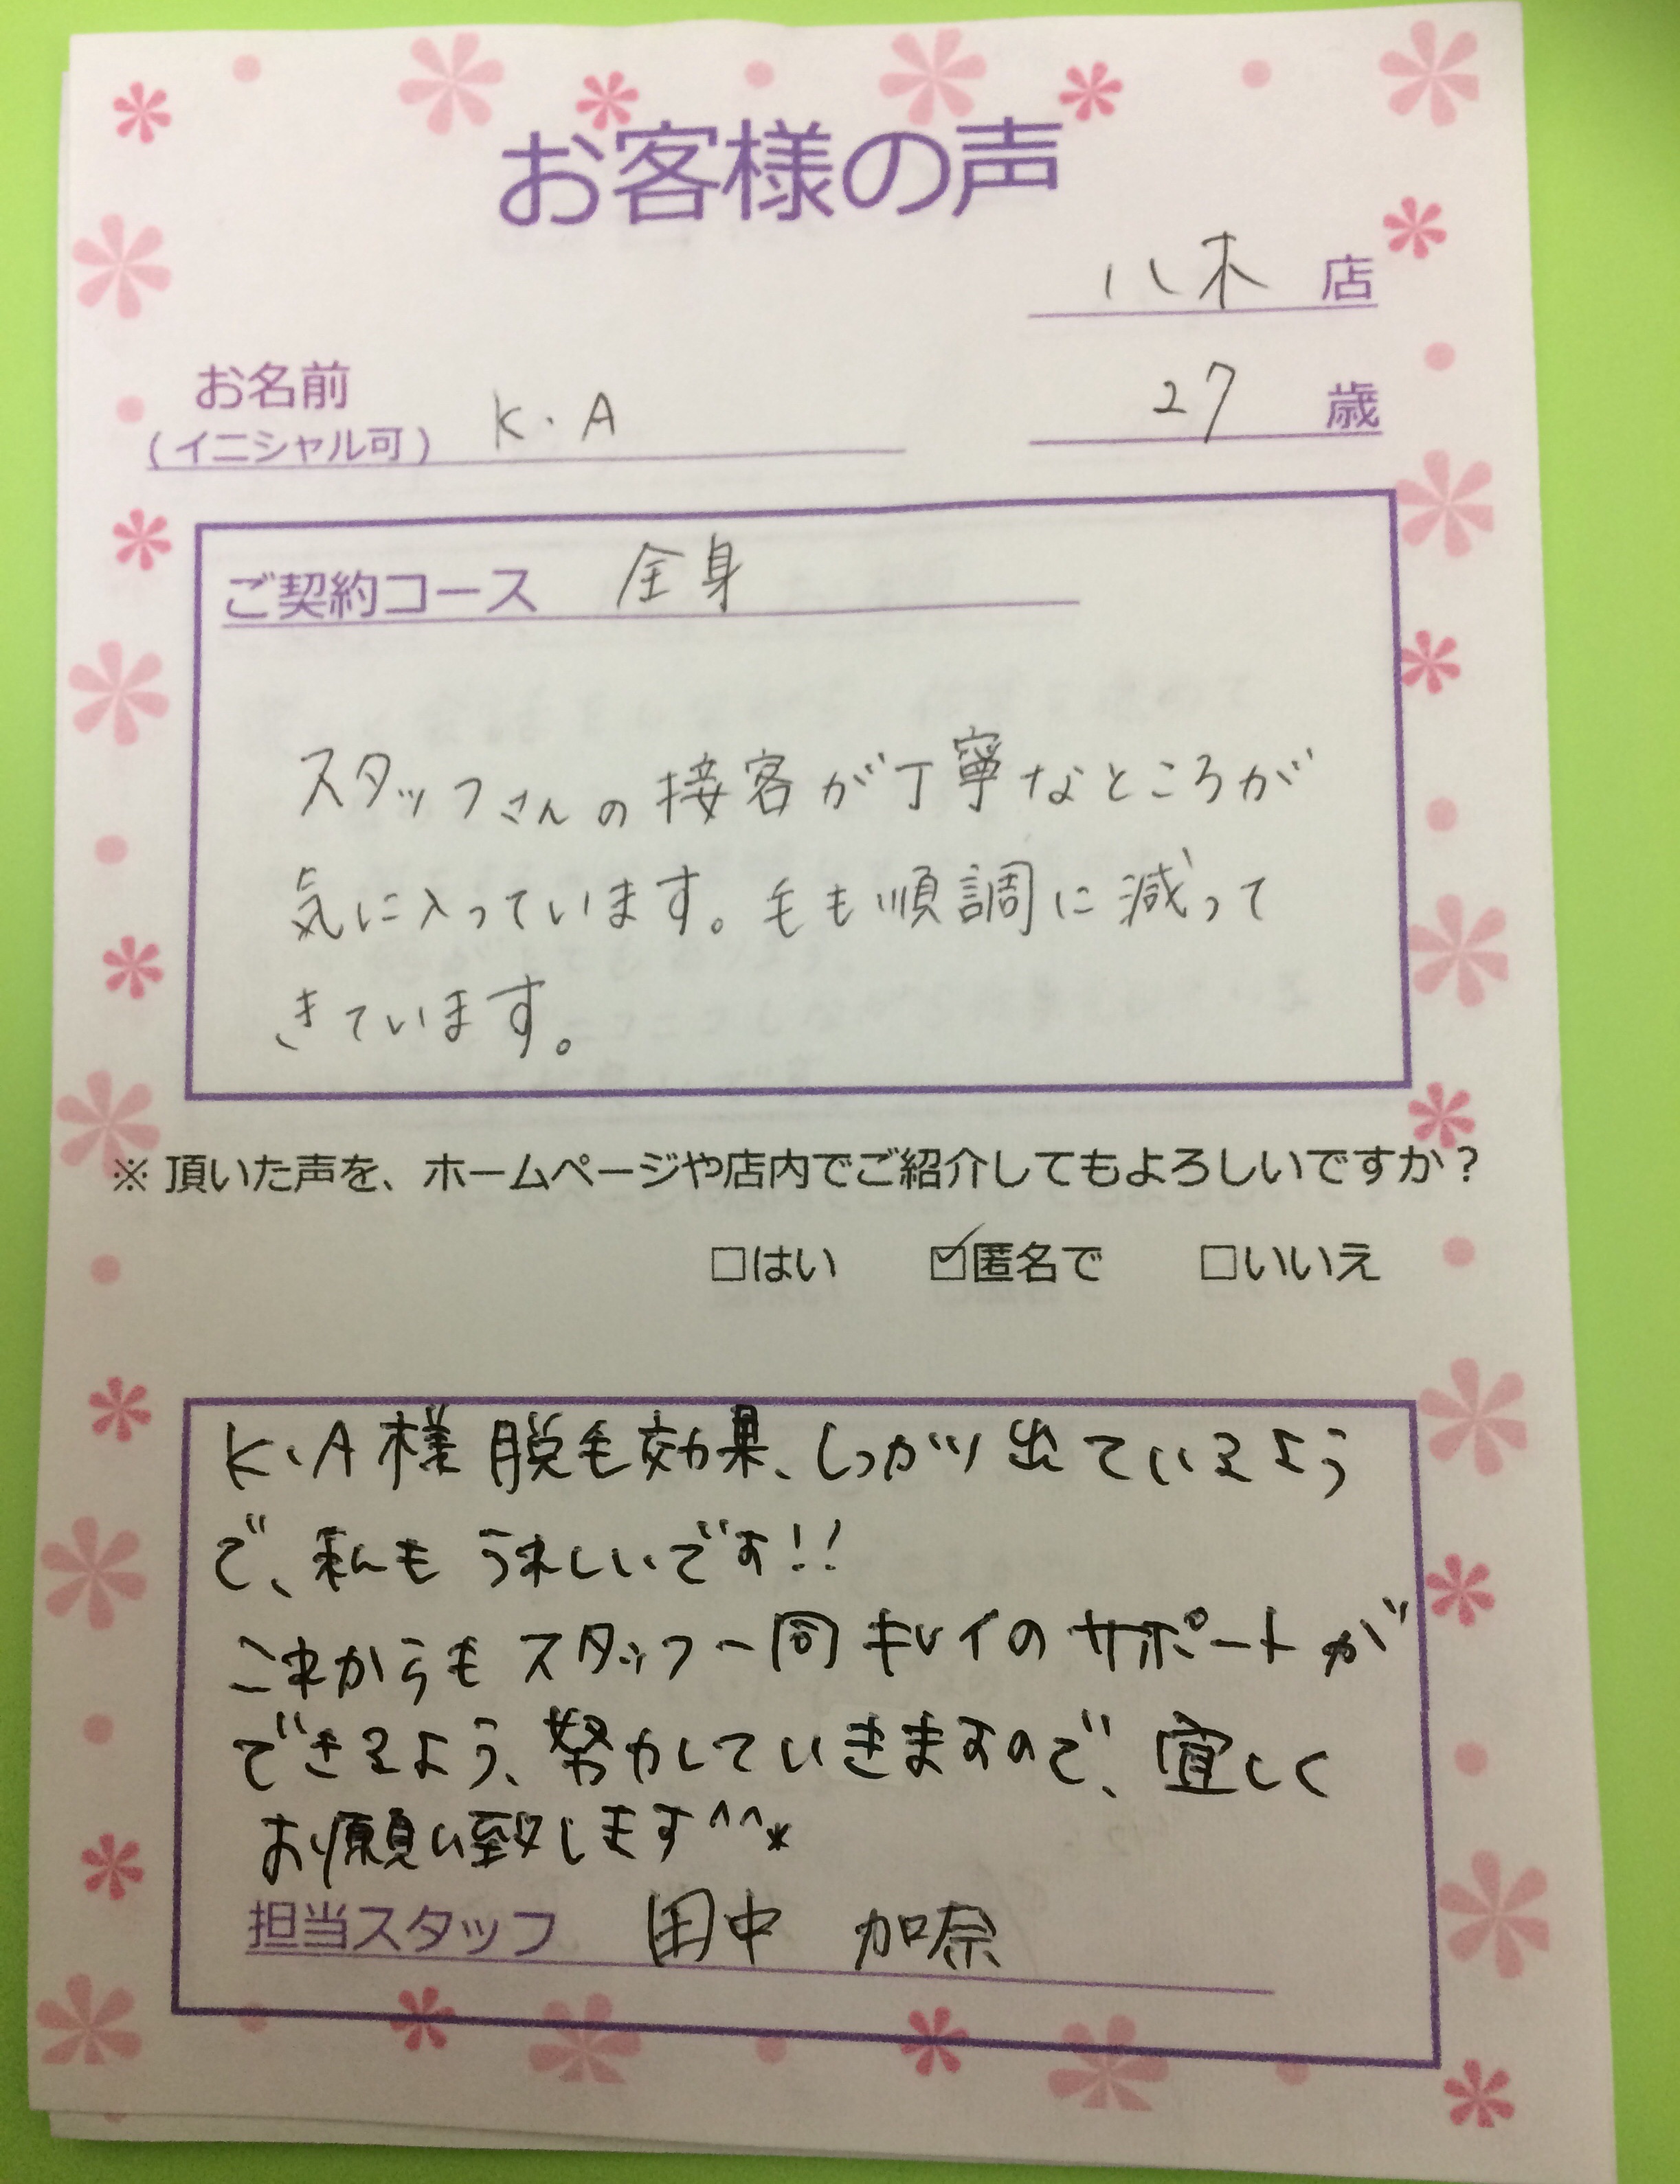 お客様の声
八木 店
お名前
(イニシャル可) K・A
27 歳
ご契約コース 全身
スタッフさんの接客が丁寧なところが
気に入っています。毛も順調に減って
きています。
※頂いた声を、ホームページや店内でご紹介してもよろしいですか?
□はい ☑匿名で □いいえ
K.A様 脱毛効果、しっかり出ているよう
で、私も うれしいです!!
これからも スタッフ一同 キレイの サポートが
できるよう、努力していきますので、宜しく
お願い致します^^*
担当スタッフ 田中 加奈